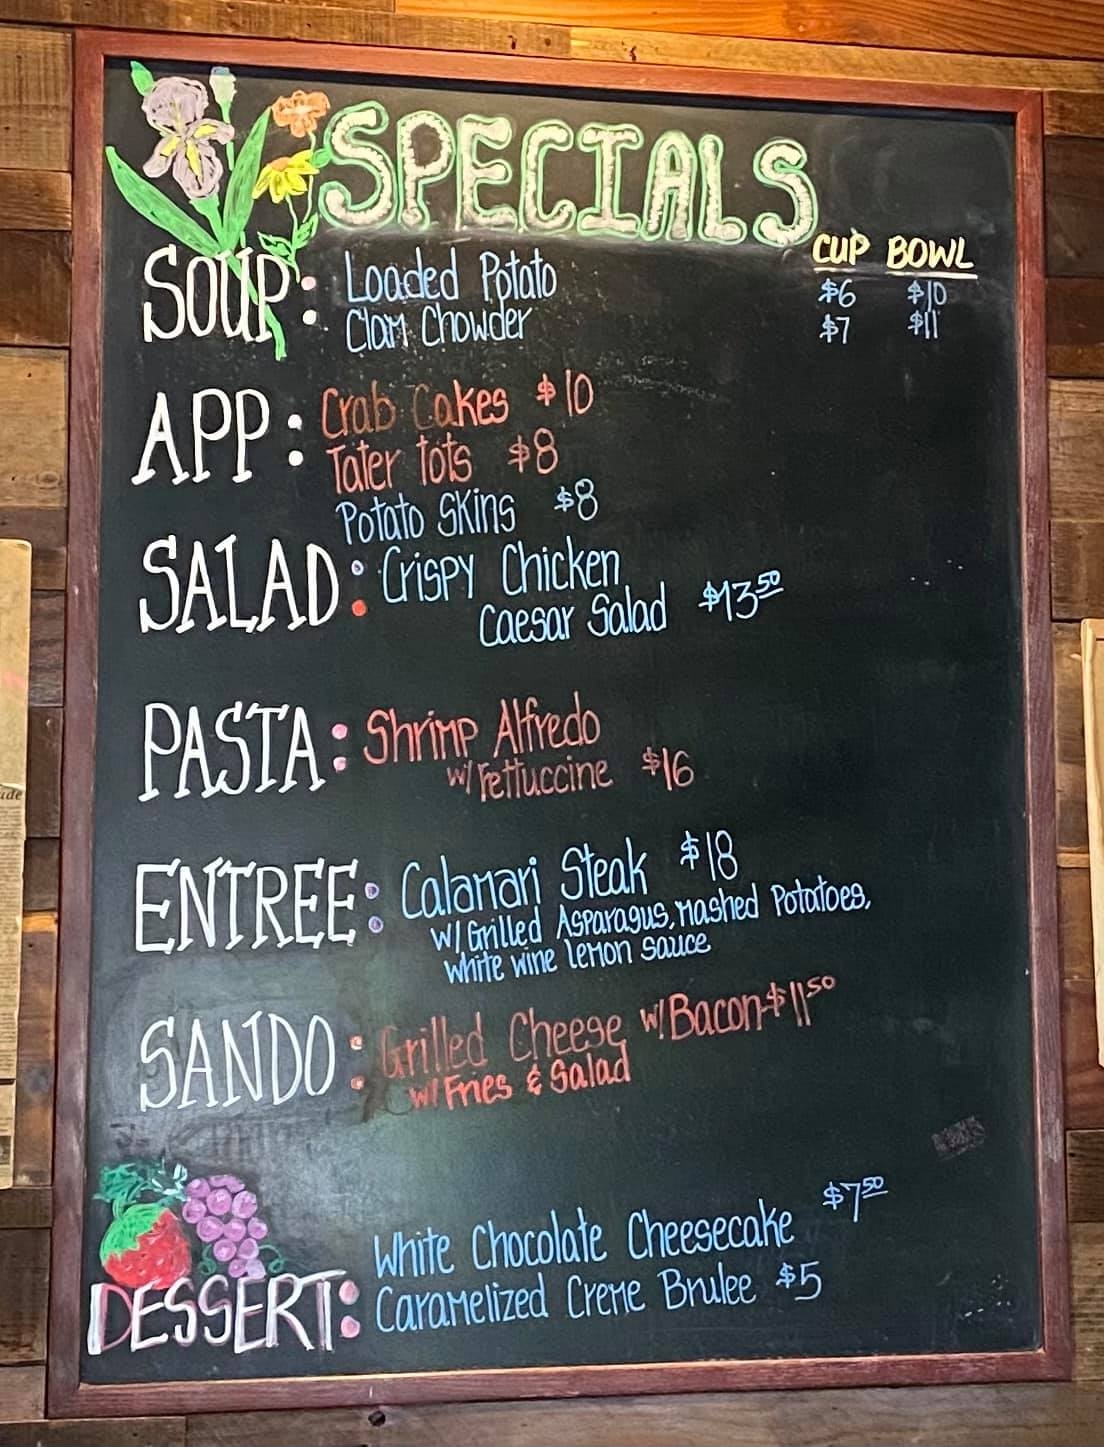 SPECIALS
CUP BOWL
SOUP: Loaded Potato $6 $10
Clam Chowder $7 $11
APP: Crab Cakes $10
Tater tots $8
Potato Skins $8
SALAD: Crispy Chicken
Caesar Salad $13.50
PASTA: Shrimp Alfredo
w/ Fettuccine $16
ENTREE: Calamari Steak $18
w/ Grilled Asparagus, Mashed Potatoes,
white wine lemon sauce
SANDO: Grilled Cheese w/ Bacon $11.50
w/ Fries & Salad
White Chocolate Cheesecake $7.50
DESSERT: Caramelized Creme Brulee $5